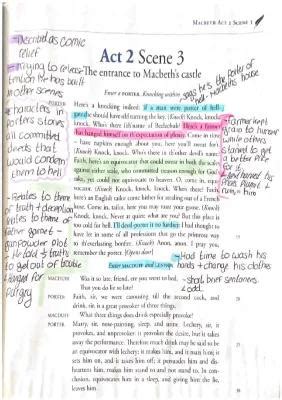 MACBETH ACT 2 SCENE 3
- Decribed as comic
relief
Act 2 Scene 3
- trying to release
tension he has built
in other scenes
The entrance to Macbeth's castle
says he's the porter of
hell - Macbeth's house
Enter a PORTER. Knocking within
PORTER
Here's a knocking indeed: if a man were porter of hell-
gate he should have old turning the key. (Knock) Knock,
knock, knock. Who's there i'th'name of Beelzebub? Here's a farmer
that hanged himself on th'expectation of plenty. Come in time
– have napkins enough about you, here you'll sweat for't.
(Knock) Knock, knock. Who's there in th'other devil's name?
Faith, here's an equivocator that could swear in both the scales
against either scale, who committed treason enough for God's
sake, yet could not equivocate to heaven. O, come in, equi-
vocator. (Knock) Knock, knock, knock. Who's there? Faith,
here's an English tailor come hither for stealing out of a French
hose. Come in, tailor, here you may roast your goose. (Knock)
Knock, knock. Never at quiet: what are you? But this place is
too cold for hell. I'll devil-porter it no further: I had thought to
have let in some of all professions that go the primrose way
to th'everlasting bonfire. (Knock) Anon, anon. I pray you,
remember the porter. (Open door)
characters in
porters stories
all committed
deeds that
would condem
them to hell
- Relates to theme
of truth + deception
father garnet -
gunpowder plot
- He told ½ truths
to get out of trouble
hanged for
purjury
- Farmer kept
grain to
while others
starved to get
a better price
for it
- Had time to wash his
hands + change his clothes
Enter MACDUFF and LENNOX
- short, brief sentences
& odd.
MACDUFF
Was it so late, friend, ere you went to bed,
That you do lie so late?
PORTER
Faith, sir, we were carousing till the second cock, and
drink, sir, is a great provoker of three things.
MACDUFF
What three things does drink especially provoke?
PORTER
Marry, sir, nose-painting, sleep, and urine. Lechery, sir, it
provokes, and unprovokes: it provokes the desire, but it takes
away the performance. Therefore much drink may be said to be
an equivocator with lechery: it makes him, and it mars him; it
sets him on, and it takes him off; it persuades him and dis-
heartens him, makes him stand to and not stand to. In con-
clusion, equivocates him in a sleep, and giving him the lie,
leaves him.